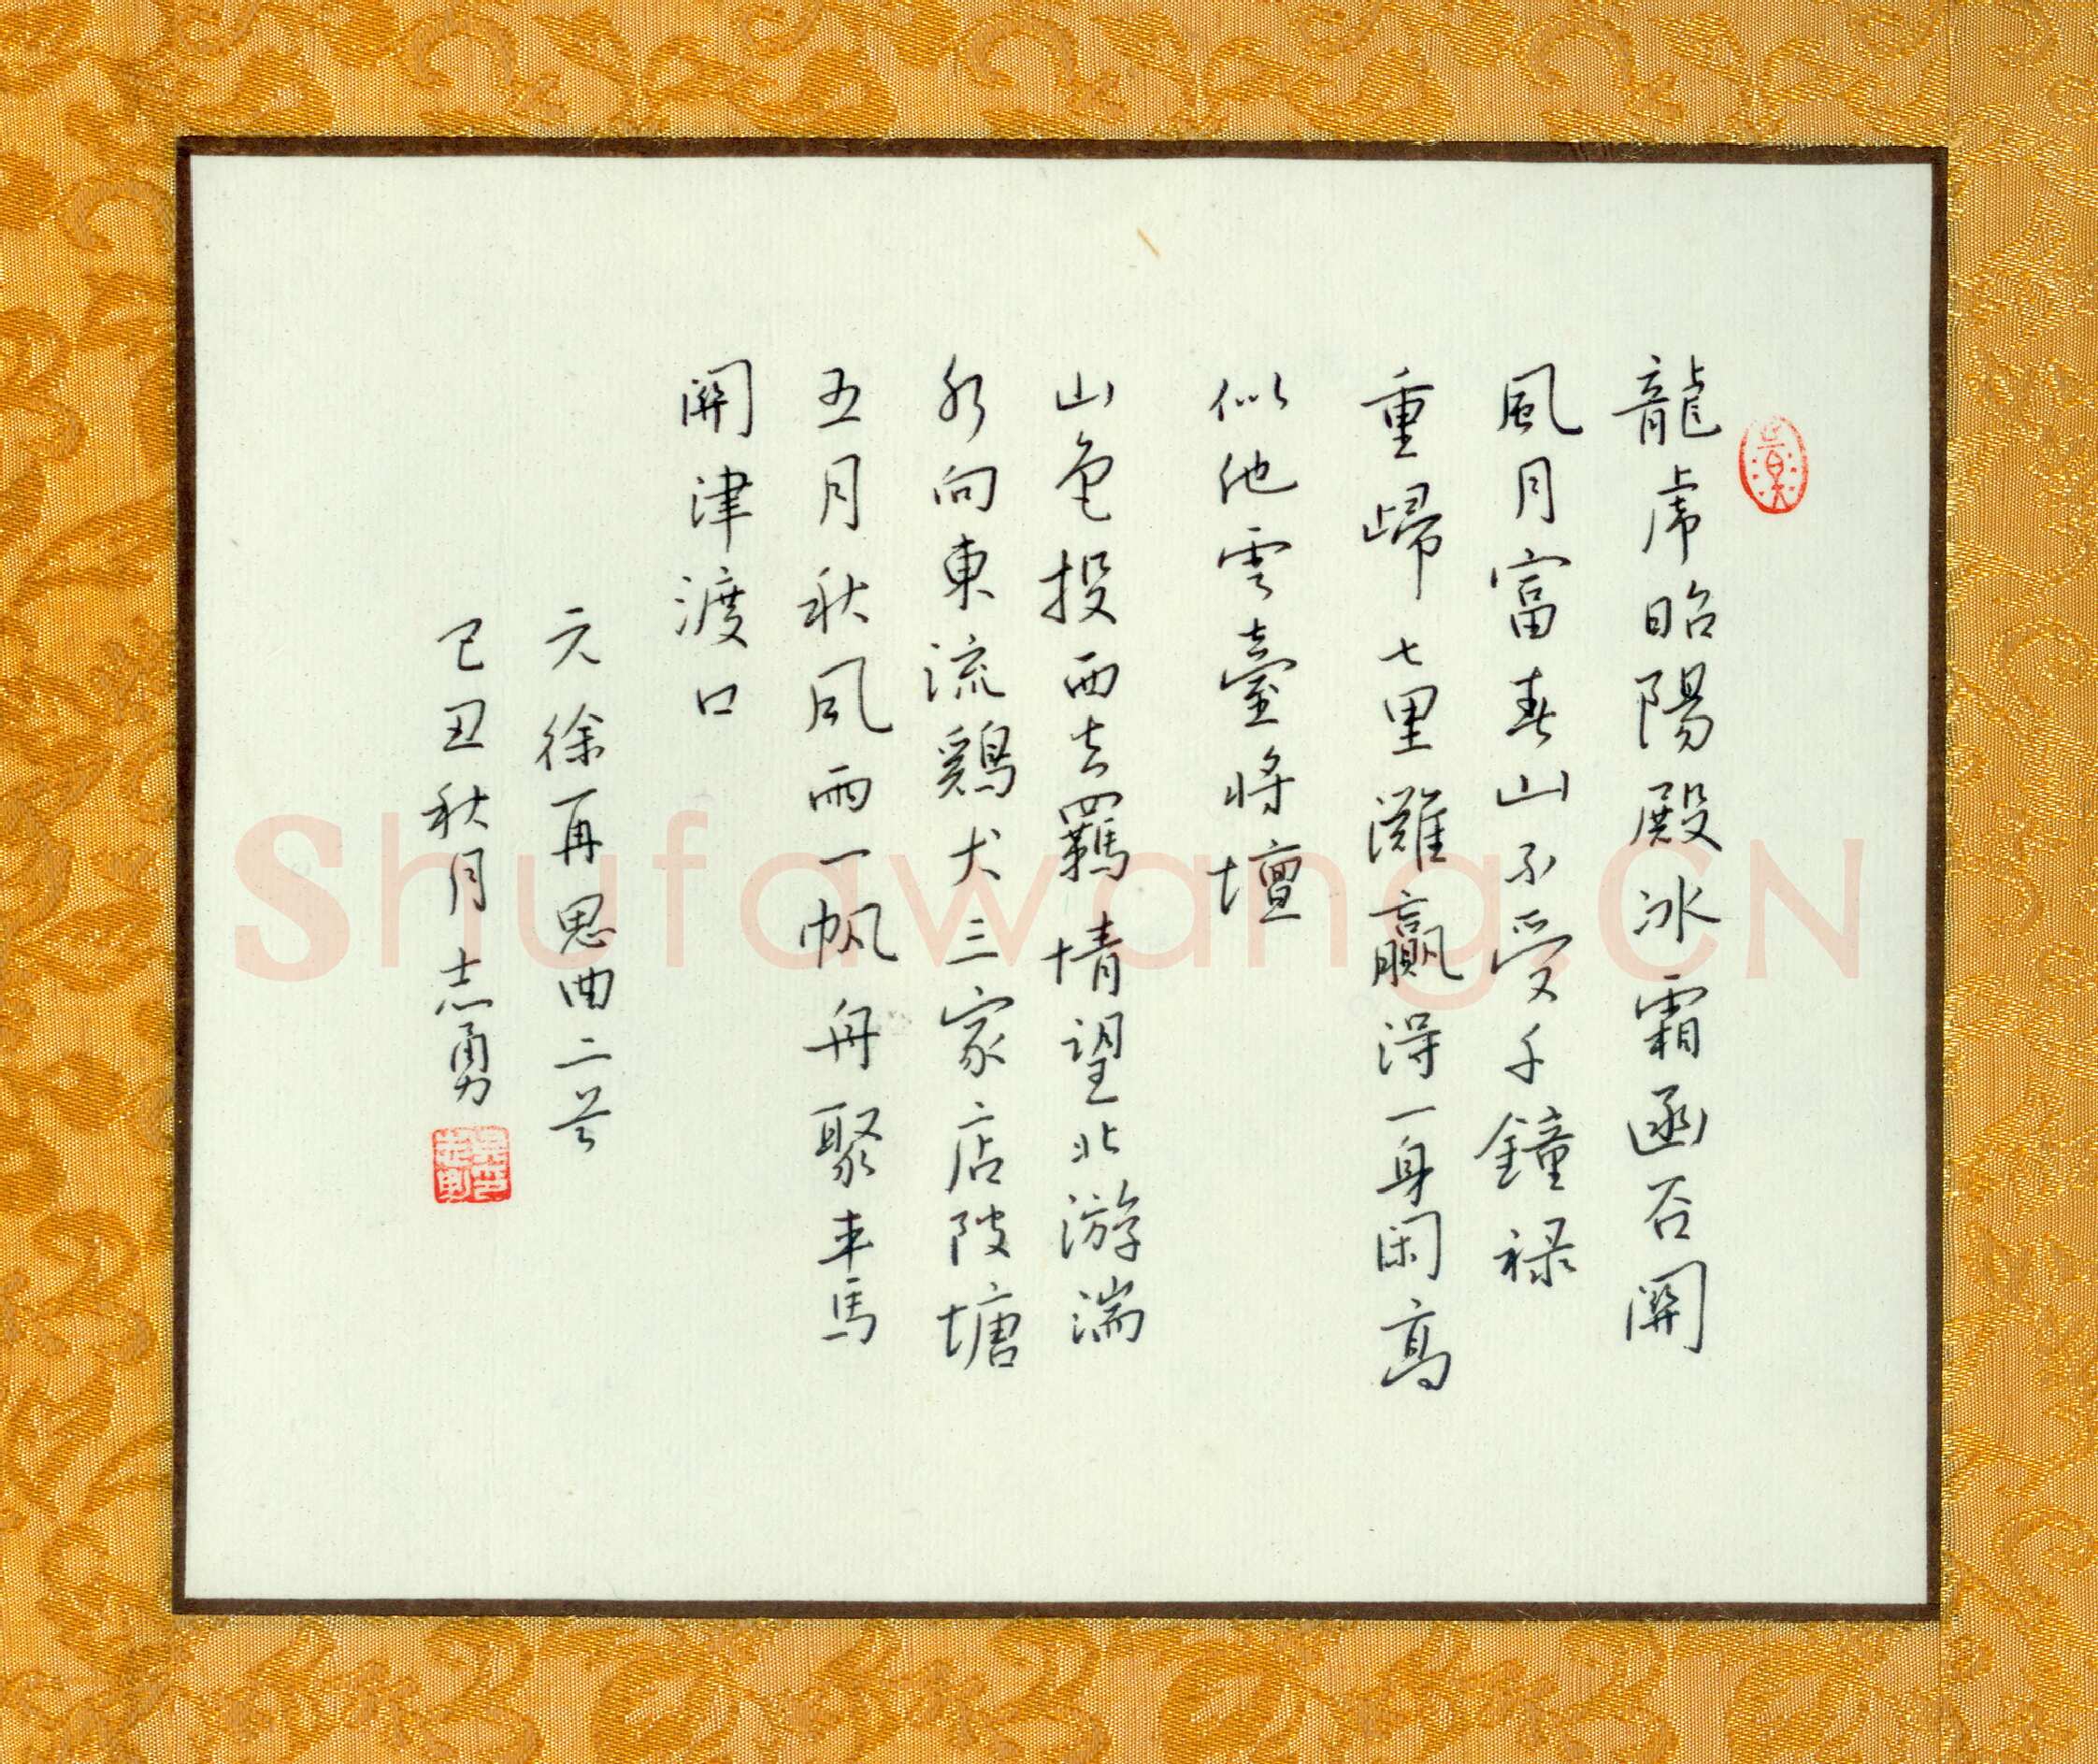 龍虎昭陽殿冰霜函谷關
風月富春山不受千鐘祿
重歸七里灘贏得一身閑高
似他雲臺將壇
山色投西去羈情望北游湍
水向東流鷄犬三家店陂塘
五月秋風雨一帆舟聚車馬
關津渡口
元徐再思曲二首
己丑秋月志勇
Shufawang.CN